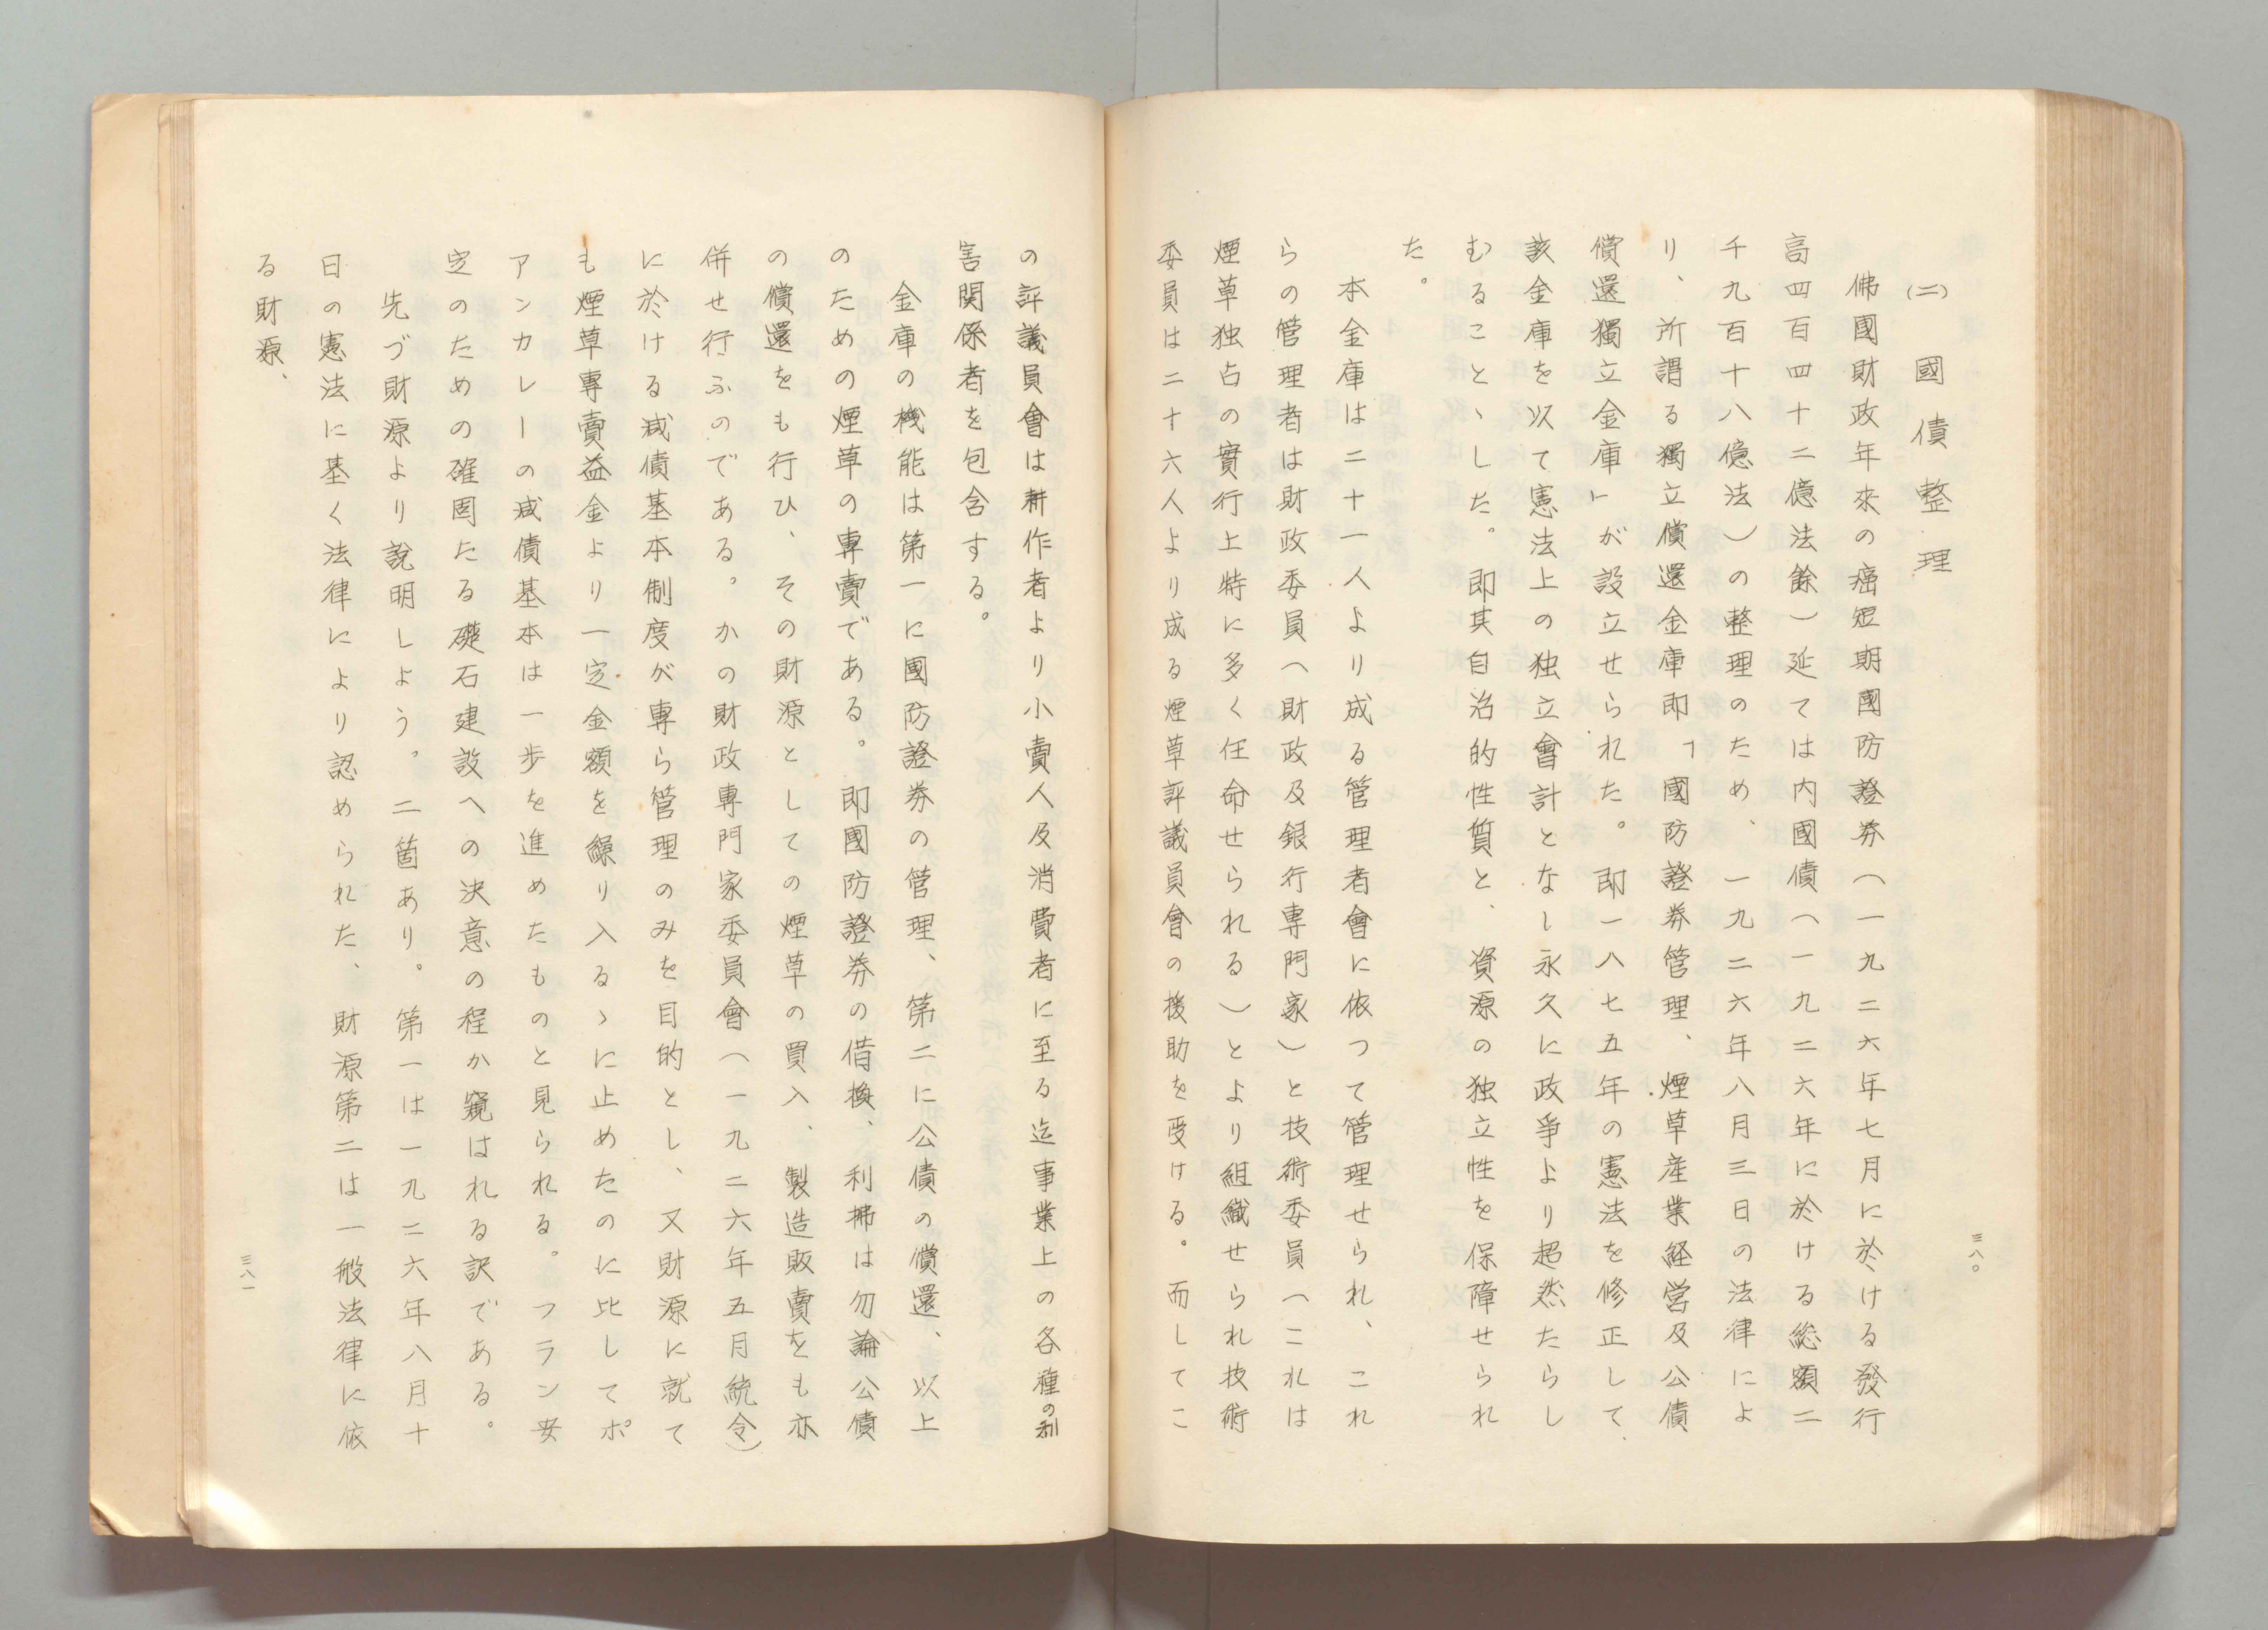 三八〇
(二) 國債整理
佛國財政年來の癌短期國防證券(一九二六年七月に於ける發行
高四百四十二億法餘)延ては内國債(一九二六年に於ける総額二
千九百十八億法)の整理のため、一九二六年八月三日の法律によ
り、所謂る獨立償還金庫即「國防證券管理、煙草産業経営及公債
償還獨立金庫」が設立せられた。即一八七五年の憲法を修正して
該金庫を以て憲法上の独立會計となし永久に政爭より超然たらし
むることゝした。即其自治的性質と、資源の独立性を保障せられ
た。
本金庫は二十一人より成る管理者會に依つて管理せられ、これ
らの管理者は財政委員(財政及銀行専門家)と技術委員(これは
煙草独占の實行上特に多く任命せられる)とより組織せられ技術
委員は二十六人より成る煙草評議員會の援助を受ける。而してこ
の評議員會は耕作者より小賣人及消費者に至る迄事業上の各種の利
害関係者を包含する。
金庫の機能は第一に國防證券の管理、第二に公債の償還、以上
のための煙草の専賣である。即國防證券の借換、利拂は勿論公債
の償還をも行ひ、その財源としての煙草の買入、製造販賣をも亦
併せ行ふのである。かの財政專門家委員會(一九二六年五月統令)
に於ける減債基本制度が専ら管理のみを目的とし、又財源に就て
も煙草專賣益金より一定金額を繰り入るゝに止めたのに比してポ
アンカレーの減債基本は一歩を進めたものと見られる。フラン安
定のための確固たる礎石建設への決意の程か窺はれる訳である。
先づ財源より説明しよう。二箇あり。第一は一九二六年八月十
日の憲法に基く法律により認められた、財源第二は一般法律に依
る財源、
三八一